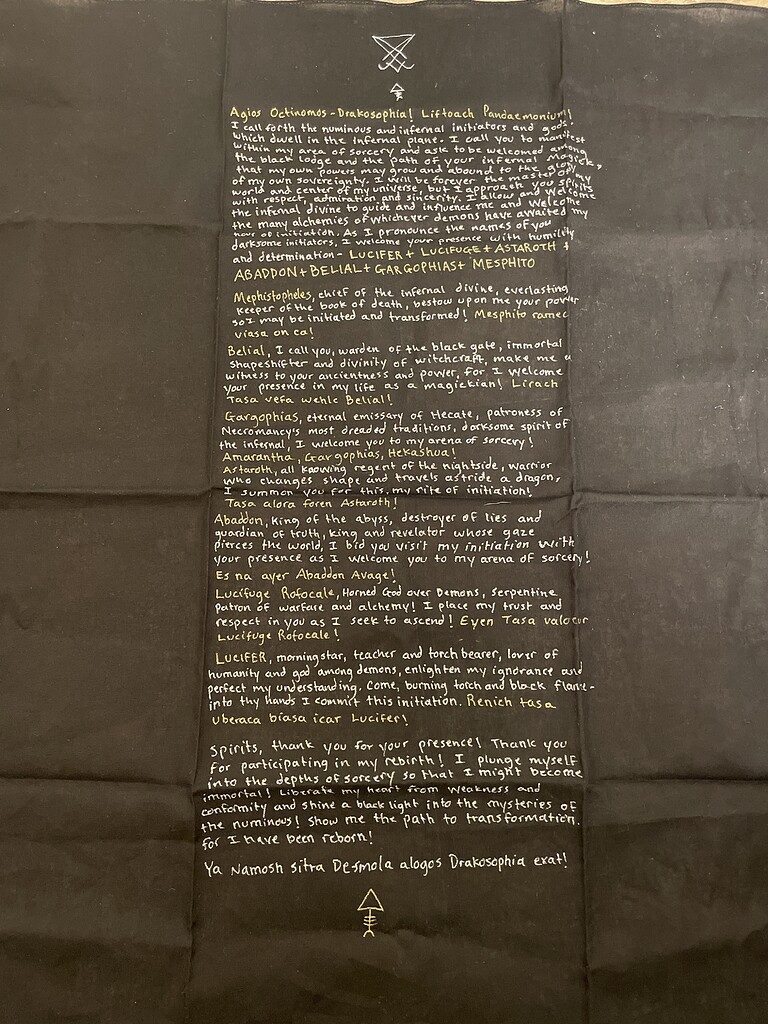 Agios Octinomos-Drakosophia! Liftoach Pandaemonium!
I call forth the numinous and infernal initiators and gods!
which dwell in the infernal plane. I call you to manifest
within my area of sorcery and ask to be welcomed among
the black lodge and the path of your infernal Magick,
that my own powers may grow and abound to the glory
of my own sovereignty. I will be forever the master of my
world and center of my universe, but I approach you spirits
with respect, admiration and sincerity. I allow and welcome
the infernal divine to guide and influence me and welcome
the many alchemies of whichever demons have awaited my
hour of initiation. As I pronounce the names of you
darksome initiators, I welcome your presence with humility
and determination- LUCIFER + LUCIFUGE + ASTAROTH +
ABADDON + BELIAL + GARGOPHIAS + MESPHITO
Mephistopheles, chief of the infernal divine, everlasting
keeper of the book of death, bestow upon me your power
so I may be initiated and transformed! Mesphito ramec
viasa on ca!
Belial, I call you, warden of the black gate, immortal
shapeshifter and divinity of witchcraft, make me a
witness to your ancientness and power, for I welcome
your presence in my life as a magickian! Lirach
Tasa vefa wehlc Belial!
Gargophias, eternal emissary of Hecate, patroness of
Necromancy's most dreaded traditions, darksome spirit of
the infernal, I welcome you to my arena of sorcery!
Amarantha, Gargophias, Hekashua!
Astaroth, all knowing regent of the nightside, warrior
who changes shape and travels astride a dragon,
I summon you for this, my rite of initiation!
Tasa alora foren Astaroth!
Abaddon, king of the abyss, destroyer of lies and
guardian of truth, king and revelator whose gaze
pierces the world, I bid you visit my initiation with
your presence as I welcome you to my arena of sorcery!
Es na ayer Abaddon Avage!
Lucifuge Rofocale, Horned God over Demons, serpentine
patron of warfare and alchemy! I place my trust and
respect in you as I seek to ascend! Eyen Tasa valocur
Lucifuge Rofocale!
LUCIFER, morningstar, teacher and torch bearer, lover of
humanity and god among demons, enlighten my ignorance and
perfect my understanding. Come, burning torch and black flame-
into thy hands I commit this initiation. Renich tasa
uberaca biasa icar Lucifer!
Spirits, thank you for your presence! Thank you
for participating in my rebirth! I plunge myself
into the depths of sorcery so that I might become
immortal! Liberate my heart from weakness and
conformity and shine a black light into the mysteries of
the numinous! Show me the path to transformation.
for I have been reborn!
Ya Namosh Sitra Desmola alogos Drakosophia erat!